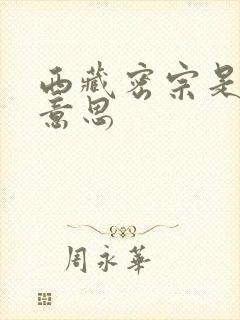 西藏密宗是
意思
周永華